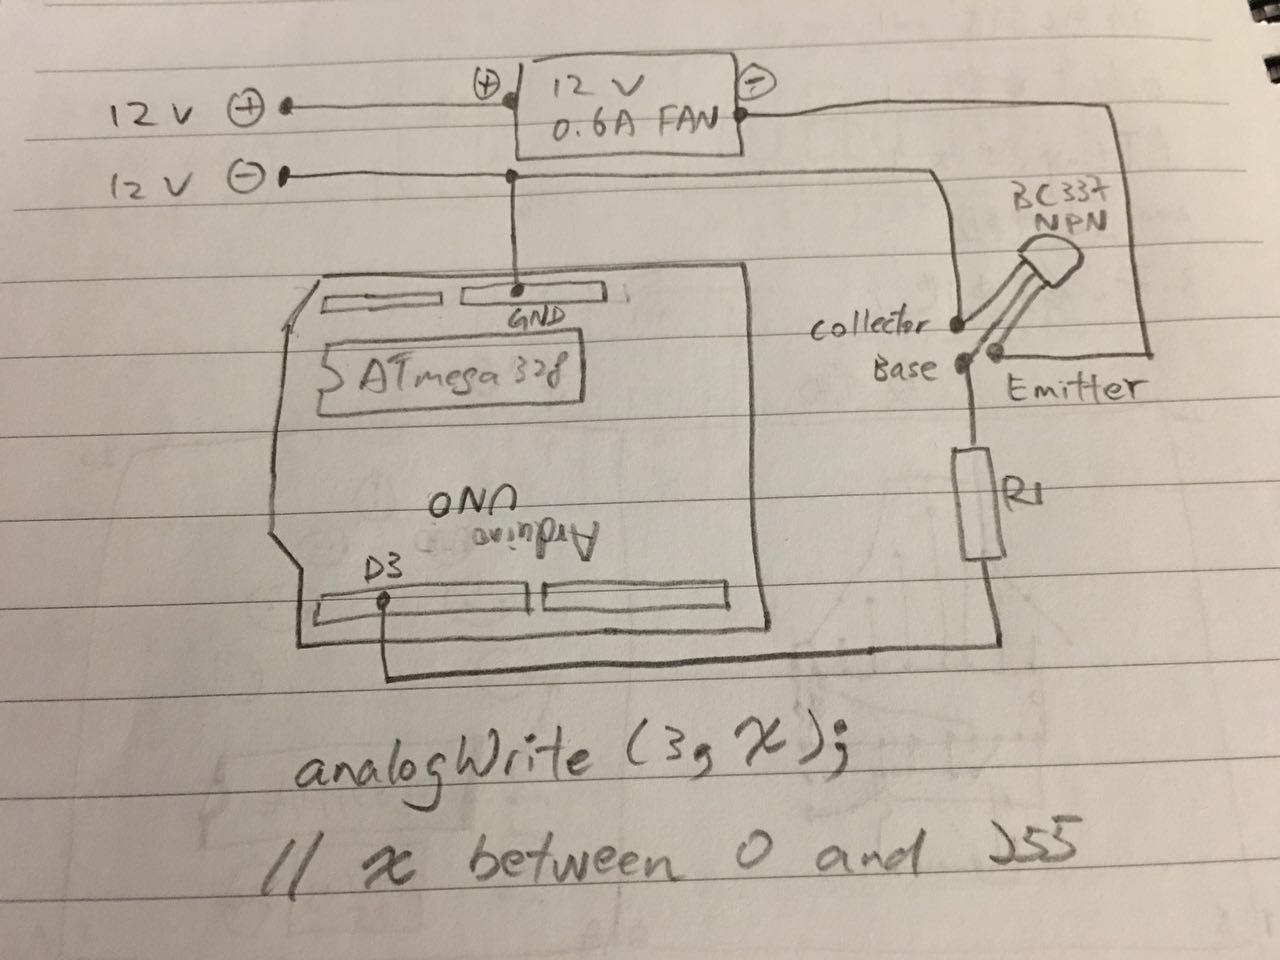 12 V ⊕
⊕
12 V
0.6A FAN
⊖
12 V ⊖
BC337
NPN
GND
ATmega 328
Collector
Base
Emitter
R1
UNO
Arduino
D3
analogWrite (3, x);
// x between 0 and 255